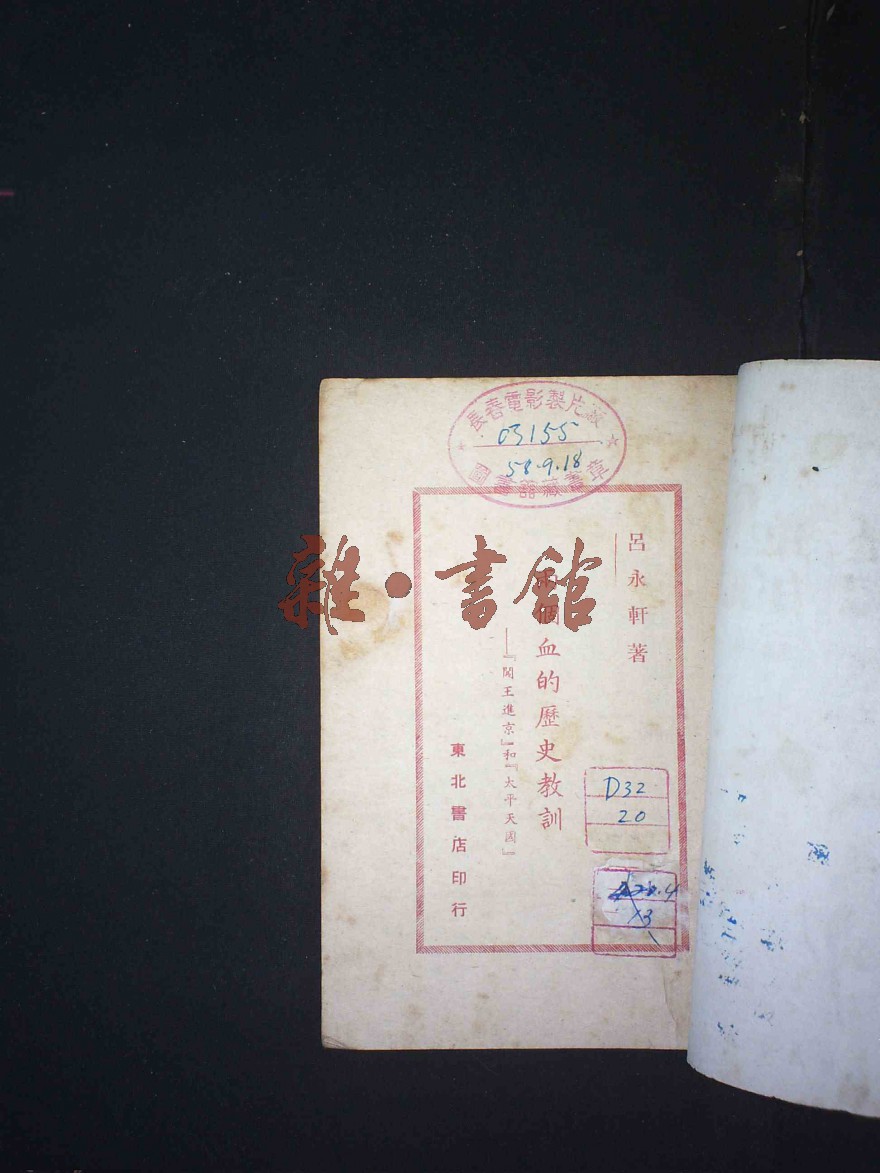 長春電影製片廠
03155
58.9.18
圖書館藏書章
呂永軒著
兩個血的歷史教訓
——『闖王進京』和『太平天國』
東北書店印行
D32
20
雜·書館